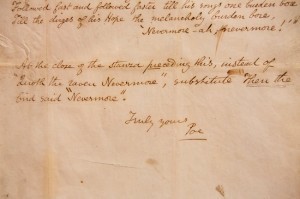 Followed fast and followed faster till his songs one burden bore,
Till the dirges of his Hope the melancholy burden bore,
Nevermore — ah, nevermore!"
At the close of the stanza preceding this, instead of
"Quoth the raven Nevermore", substitute "Then the
bird said "Nevermore".
Truly yours
Poe